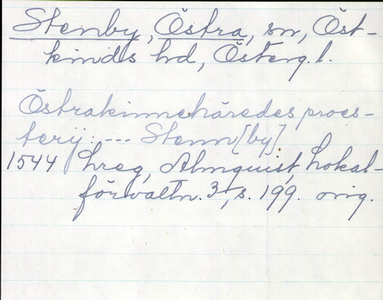 Stenby, Östra, sn, Öst-
kinds hd, Österg. l.
Östrakinnehäredes proes-
terij: --- Stenn[by]
1544 hreg, Almquist, Lokal-
förvaltn. 3, s. 199. orig.